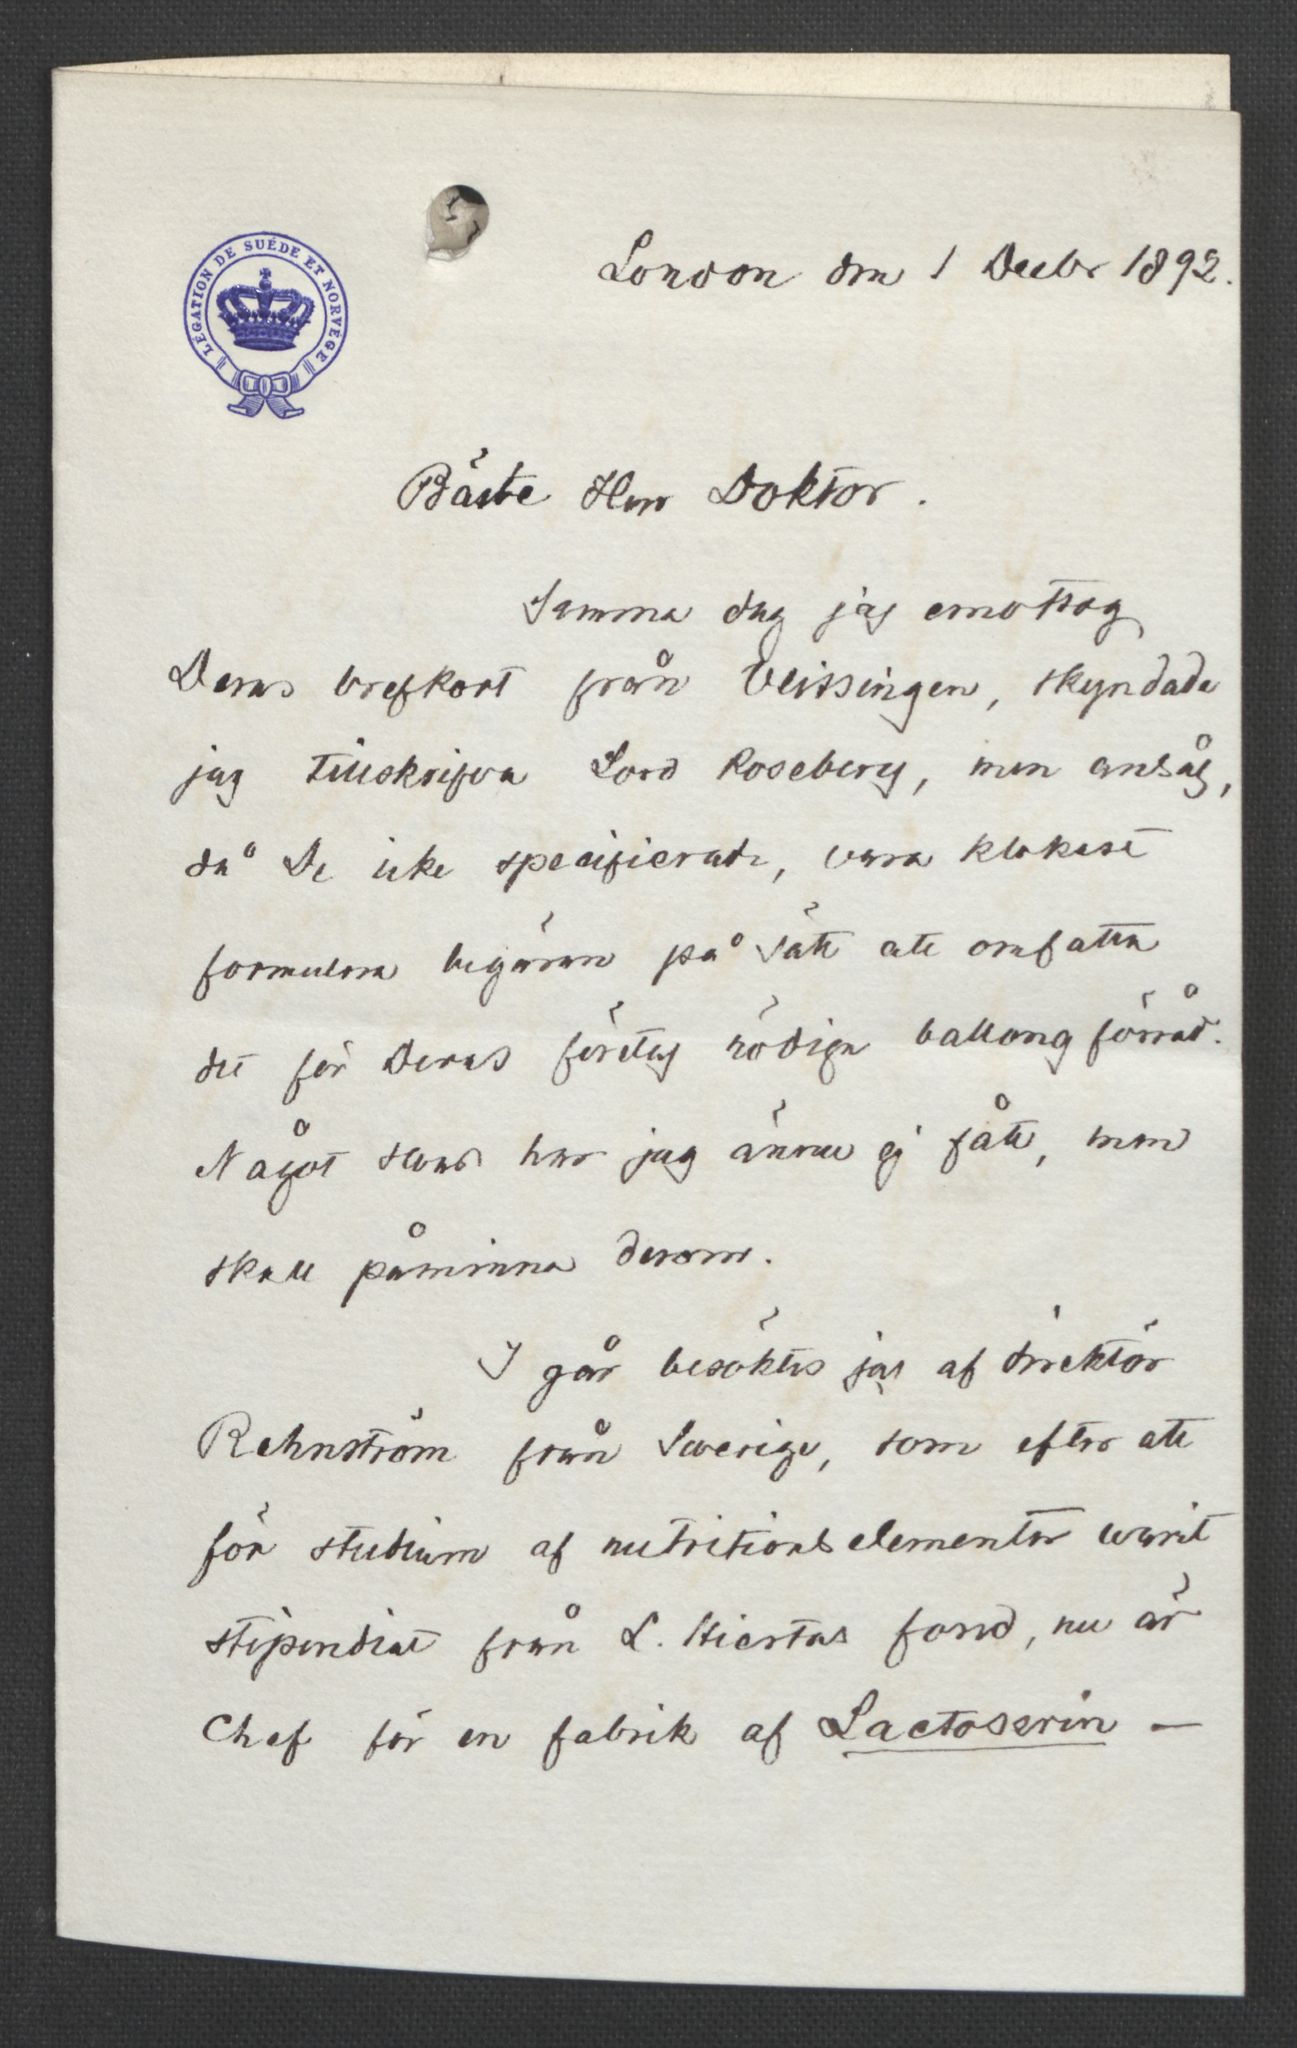 LÉGATION DE SUÉDE ET NORVÉGE
London den 1 Decbr 1892.
Bäste Herr Doktor.
Samma dag jag emottog
Deras brefkort från Vlissingen, skyndade
jag tillskrifva Lord Rosebery, men ansåg,
då De icke specifierade, vara klokast
formulera begäran på sätt att omfatta
det för Deras företag nödiga ballong förråd.
Något svar har jag ännu ej fått, men
skall påminna derom.
I går besöktes jag af direktör
Rehnström från Sverige, som efter att
för studium af nutritionselementer warit
stipendiat från L. Hiertas fond, nu är
Chef för en fabrik af Lactoserin —